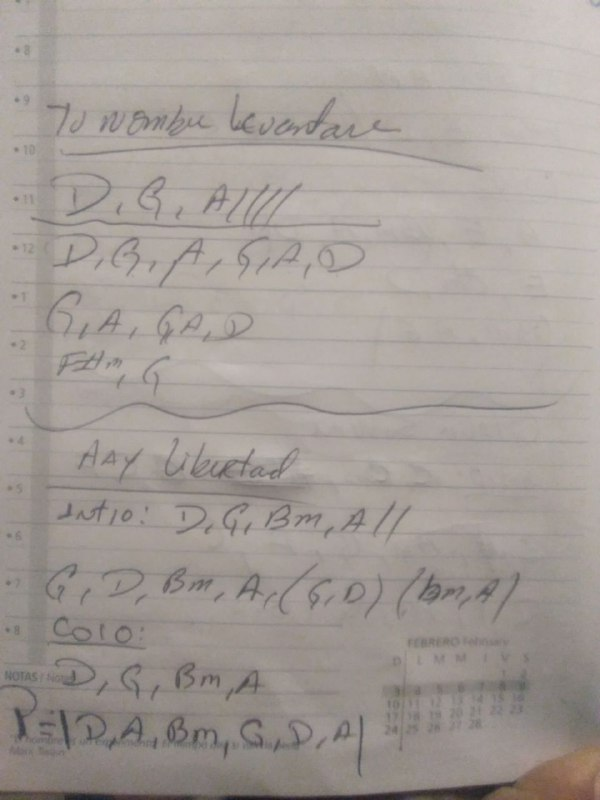 •8
•9
Tu nombre levantare
•10
•11 D, G, A/////
•12 D, G, A, G, A, D
•1
G, A, G, A, D
•2
F#m, G
•3
•4
HAY libertad
•5
Intro: D, G, Bm, A//
•6
•7 G, D, Bm, A, (G, D) (bm, A)
•8 Coro:
D, G, Bm, A
NOTAS /
P=|D, A, Bm, G, D, A|
Mark Twain
FEBRERO February
D L M M J V S
1 2
3 4 5 6 7 8 9
10 11 12 13 14 15 16
17 18 19 20 21 22 23
24 25 26 27 28